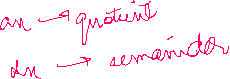 an → quotient
dn → remainder